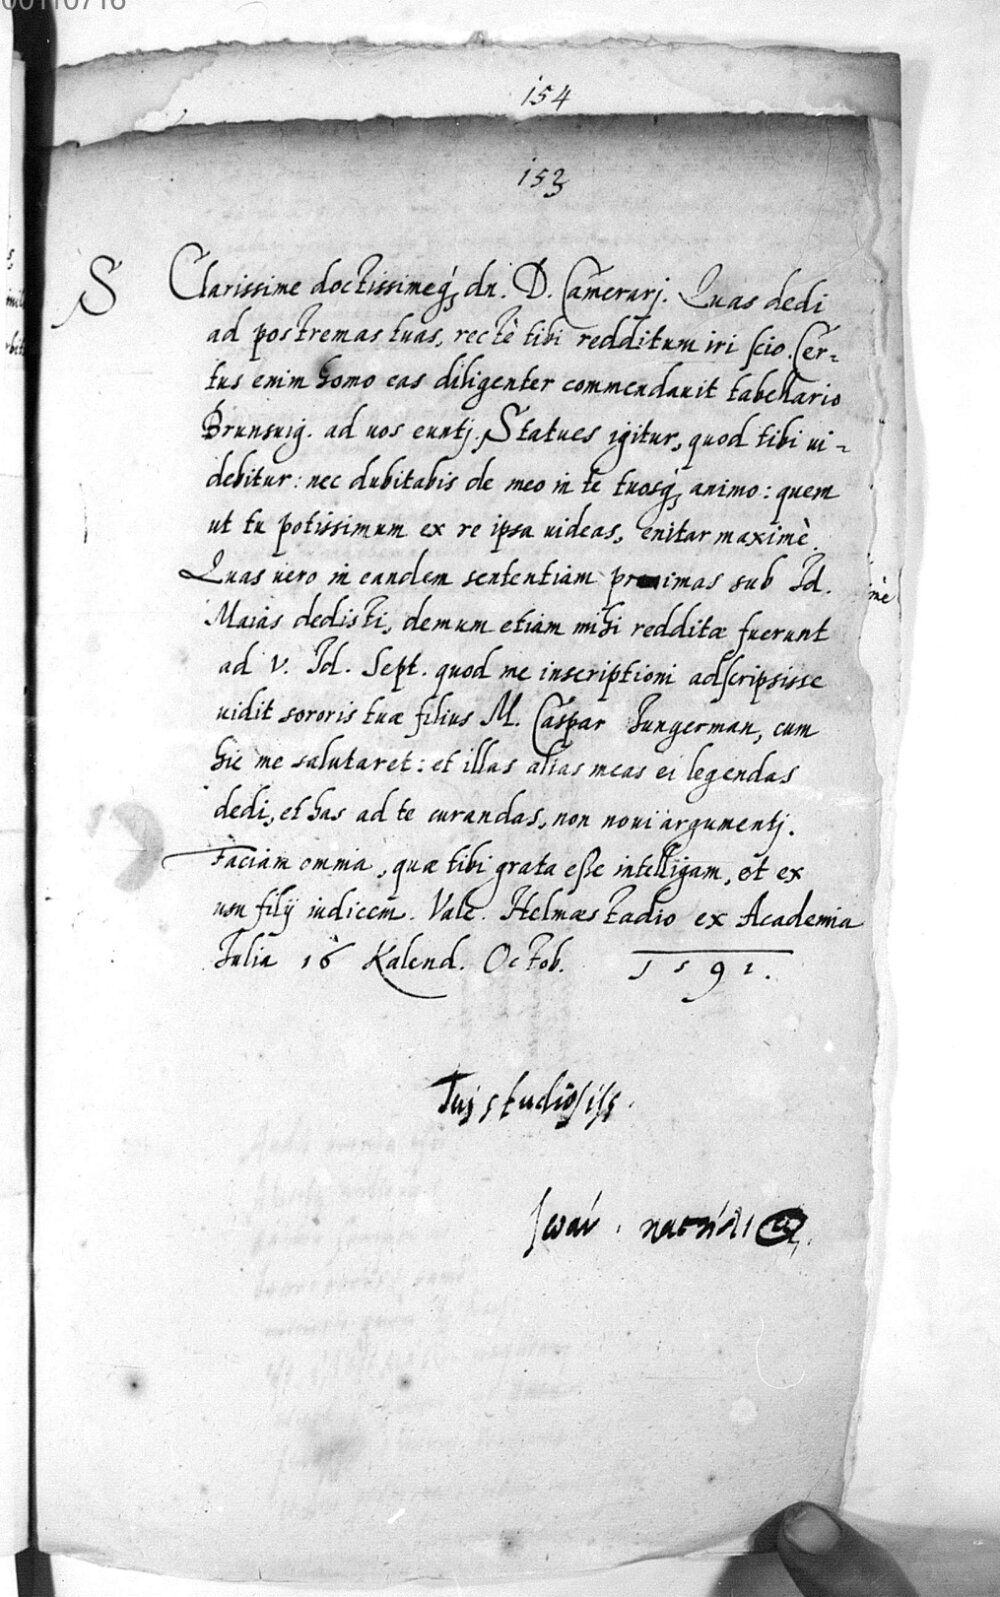 00110716
154
153
S Clarissime doctissimeq́; dn. D. Camerarj. Quas dedi
ad postremas tuas, rectè tibi redditum iri scio. Cer-
tus enim homo eas diligenter commendauit tabellario
Brunsuig. ad uos euntj. Statues igitur, quod tibi ui-
debitur: nec dubitabis de meo in te tuosq́; animo: quem
ut tu potissimum ex re ipsa uideas, enitar maximè.
Quas uero in eandem sententiam proximas sub Id.
Maias dedisti, demum etiam mihi redditæ fuerunt
ad V. Id. Sept. quod me inscriptioni adscripsisse
uidit sororis tuæ filius M. Caspar Jungerman, cum
hic me salutaret: et illas alias meas ei legendas
dedi, et has ad te curandas, non noui argumentj.
Faciam omnia, quæ tibi grata esse intelligam, et ex
usu filij iudicem. Vale. Helmæstadio ex Academia
Julia 16 Kalend. Octob. 1591.
Tuj studiosiss.